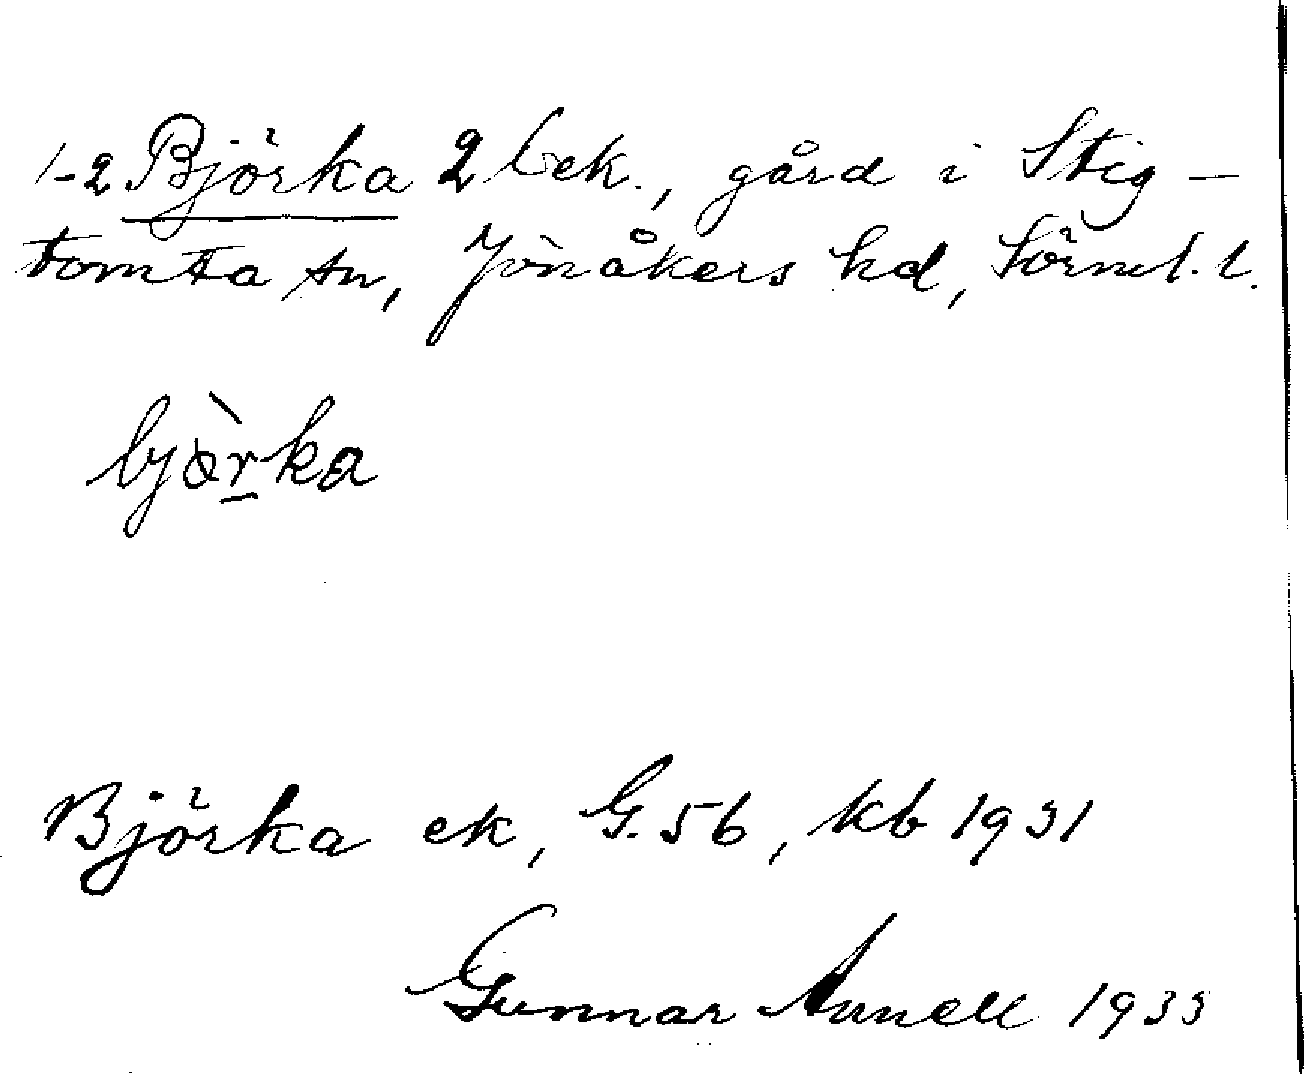 1-2 Björka 2 bek., gård i Stig-
tomta sn, Jönåkers hd, Sörml. l.
bjòrka
Björka ek, G. 56, kb 1931
Gunnar Annell 1935